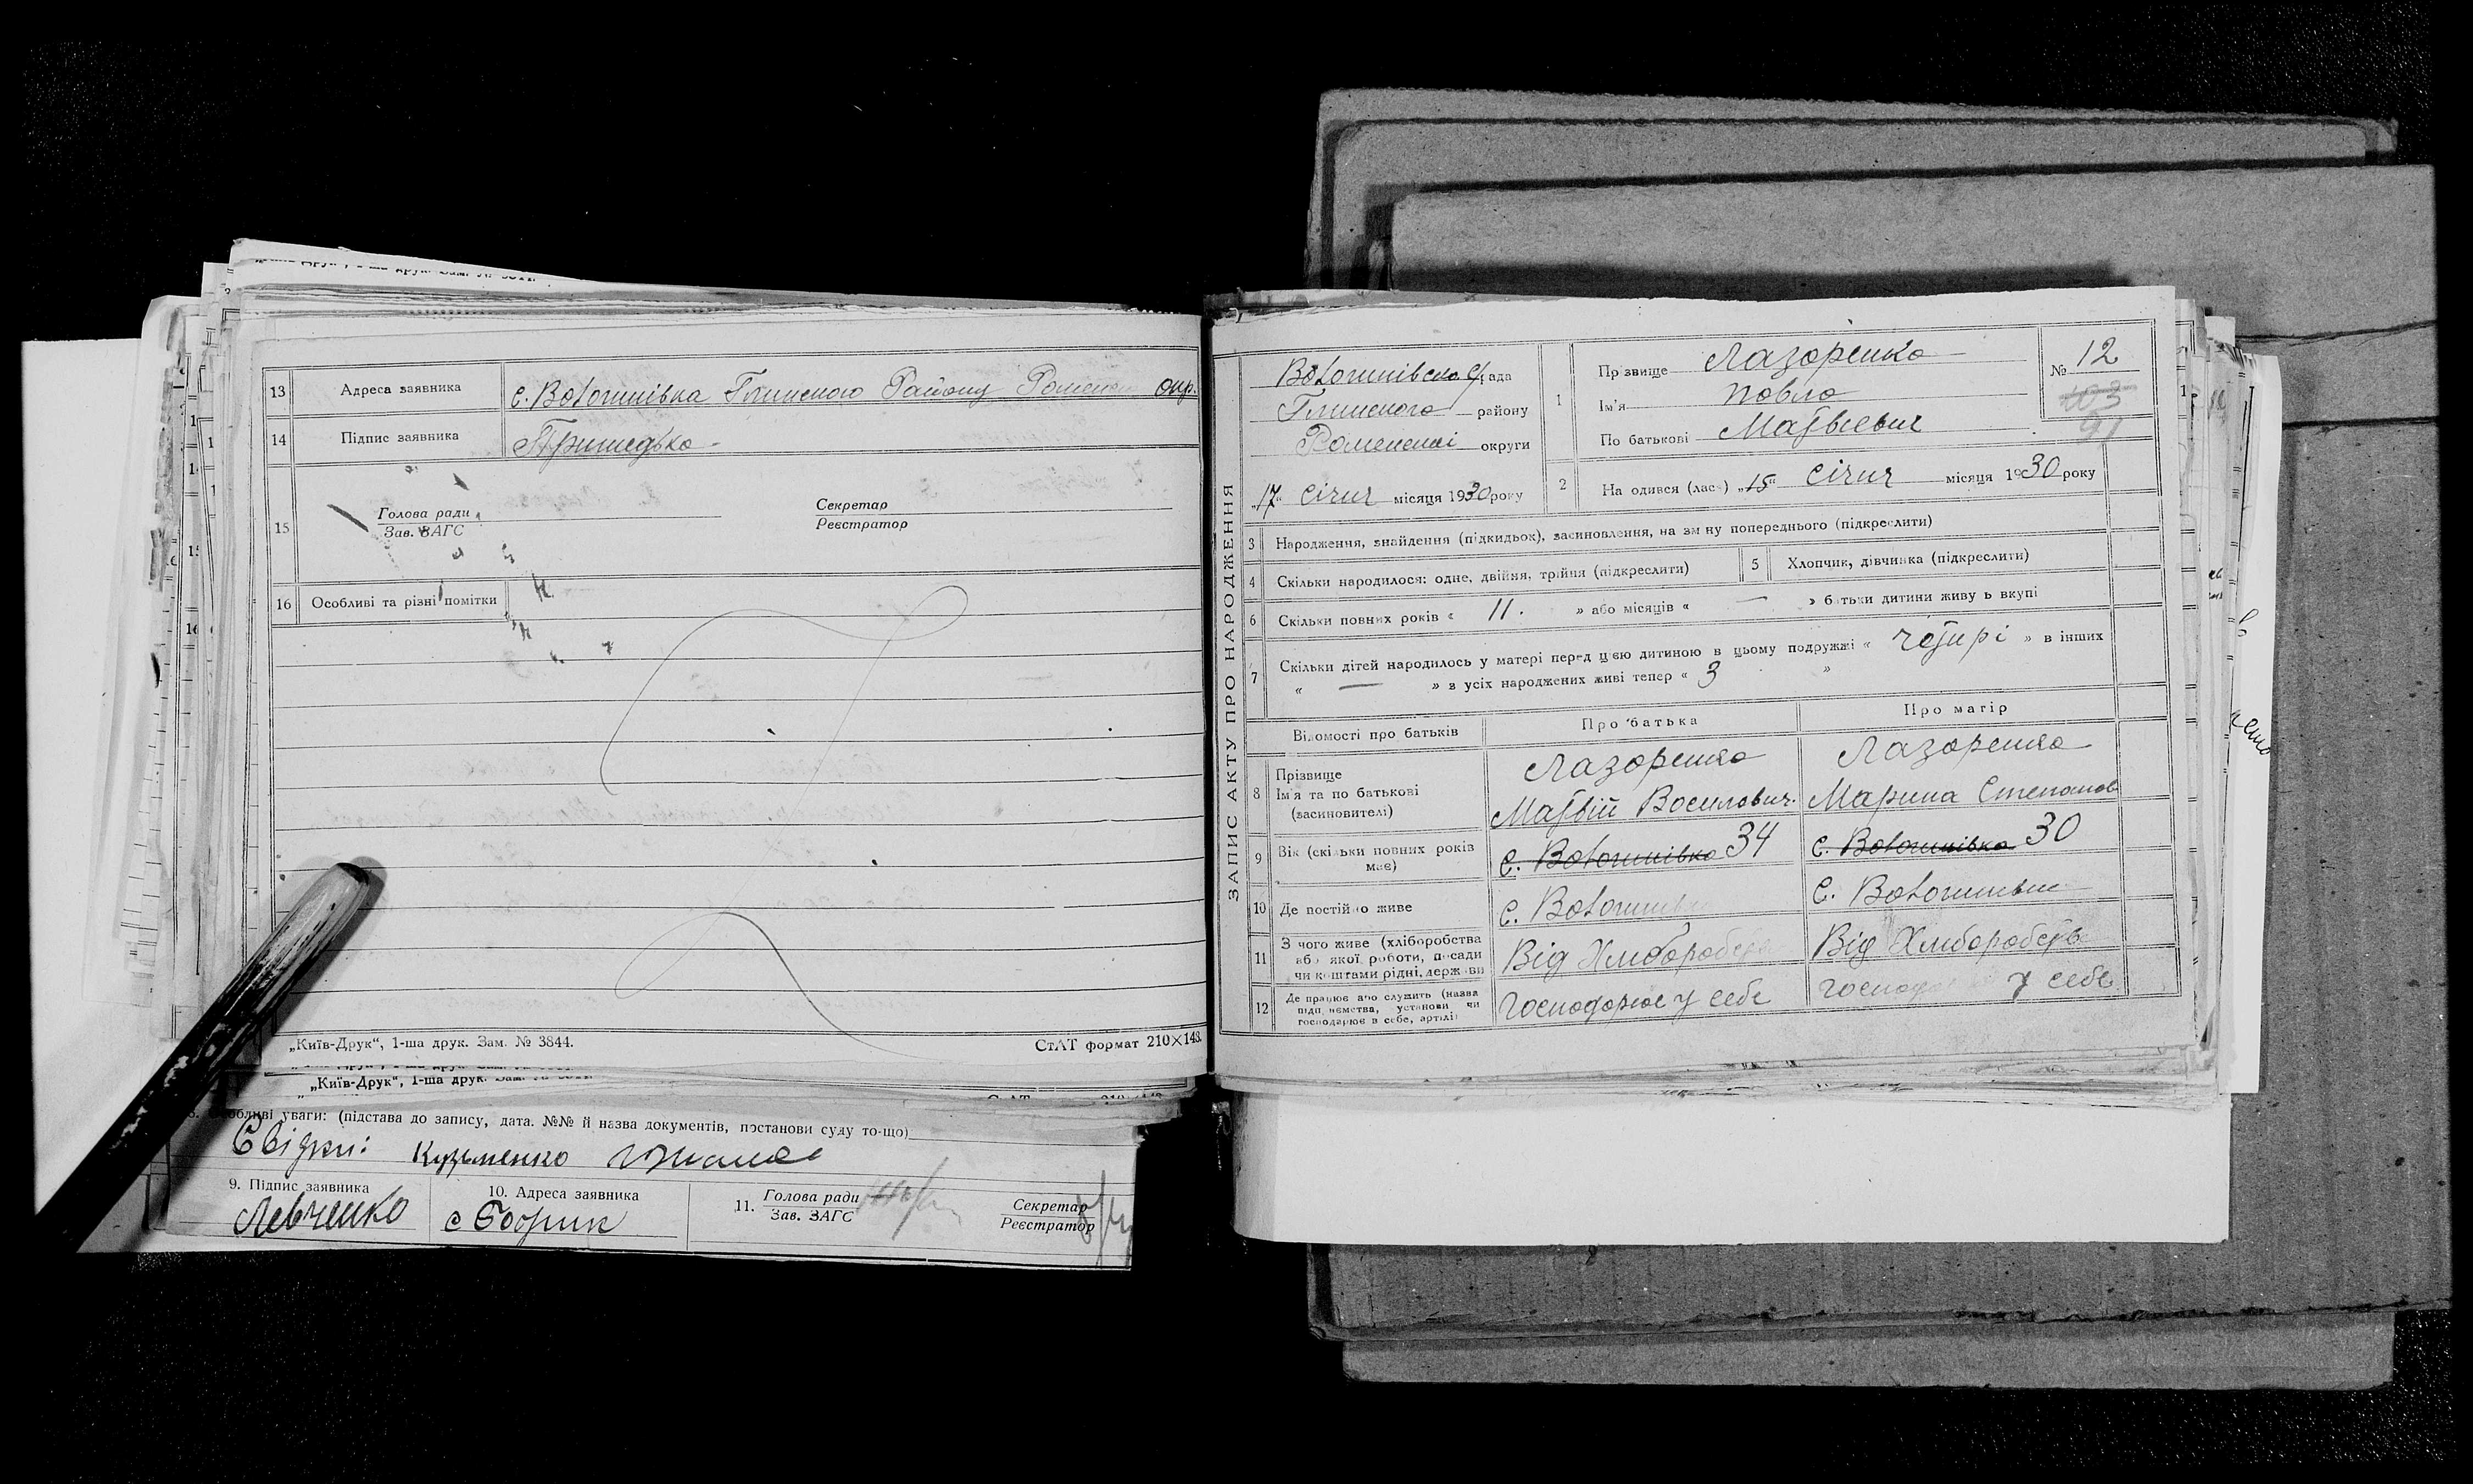 13 Адреса заявника с. Волошнівка Глинского Району Роменск окр.
14 Підпис заявника Пришедько
15 Голова ради Секретар
Зав. ЗАГС Реєстратор
16 Особливі та різні помітки
„Київ-Друк“, 1-ша друк. Зам. № 3844. СтАТ формат 210×148.
„Київ-Друк“, 1-ша друк.
Особливі уваги: (підстава до запису, дата. №№ й назва документів, постанови суду то-що)
Свідки: Кузьменко
9. Підпис заявника 10. Адреса заявника 11. Голова ради Секретар
Левченко с Бобрик Зав. ЗАГС Реєстратор
ЗАПИС АКТУ ПРО НАРОДЖЕННЯ
Волошнівска с/рада
Глинского району
Роменскої округи
„17“ Січня місяця 1930 року
1 Прізвище Лазоренко
Ім'я Повло
По батькові Матвієвич
№ 12
103
91
2 На одився (лась) „15“ Січня місяця 1930 року
3 Народження, знайдення (підкидьок), засиновлення, на зм ну попереднього (підкреслити)
4 Скільки народилося: одне, двійня, трійня (підкреслити) 5 Хлопчик, дівчинка (підкреслити)
6 Скільки повних років « 11. » або місяців « — » батьки дитини живу ь вкупі
7 Скільки дітей народилось у матері перед цією дитиною в цьому подружжі « чотирі » в інших
« — » з усіх народжених живі тепер « 3 »
Відомості про батьків Про батька Про матір
8 Прізвище Лазоренко Лазоренко
Ім'я та по батькові Матвій Восилович. Марина Степанов
(засиновителі)
9 Вік (скільки повних років має) с. Волошнівка 34 с. Волошнівка 30
10 Де постійно живе с. Волошнівка с. Волошнівка
11 З чого живе (хліборобства або якої роботи, посади чи коштами рідні, держави Від Хліборобств Від Хліборобств
12 Де працює або служить (назва підприємства, установи чи господарює в себе, артілі) Господорює у себе Господорює у себе